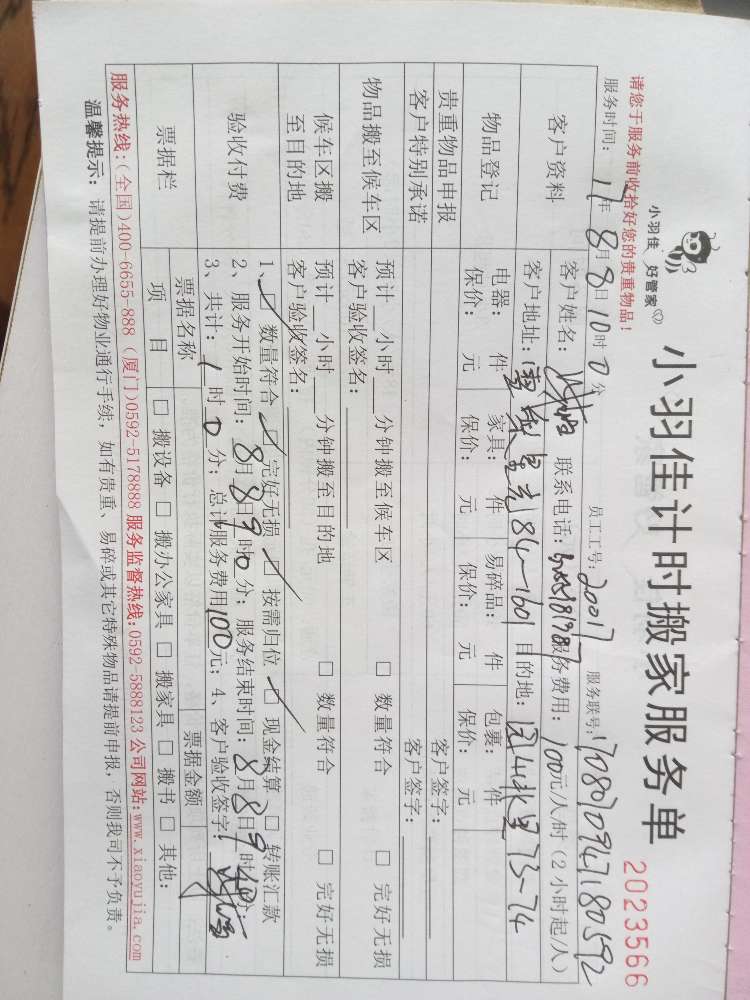 小羽佳 好管家
小羽佳计时搬家服务单
2023566
请您于服务前收拾好您的贵重物品!
员工工号: 20017 服务联号: 1708010947180592
服务时间: 17年8月8日10时0分
客户资料
客户姓名: 联系电话: 服务费用: 100元/人/时(2小时起/人)
客户地址: 84-1601 目的地: 73-74
物品登记
电器: 件 家具: 件 易碎品: 件 包裹: 件
保价: 元 保价: 元 保价: 元 保价: 元
贵重物品申报 客户签字:
客户特别承诺 客户签字:
物品搬至候车区
预计 小时 分钟搬至候车区 □ 数量符合 □ 完好无损
客户验收签名:
候车区搬至目的地
预计 小时 分钟搬至目的地 □ 数量符合 □ 完好无损
客户验收签名:
验收付费
1、□ 数量符合 □ 完好无损 □ 按需归位 □ 现金结算 □ 转账汇款
2、服务开始时间: 8月8日9时0分; 服务结束时间: 8月8日9时40分;
3、共计: 1时0分; 总计服务费用100元; 4、客户验收签字:
票据栏
票据名称 票据金额
项目 □ 搬设备 □ 搬办公家具 □ 搬家具 □ 搬书 □ 其他:
服务热线:(全国)400-6655-888 (厦门)0592-5178888 服务监督热线:0592-5888123 公司网站:www.xiaoyujia.com
温馨提示: 请提前办理好物业通行手续, 如有贵重、易碎或其它特殊物品请提前申报, 否则我司不予负责。